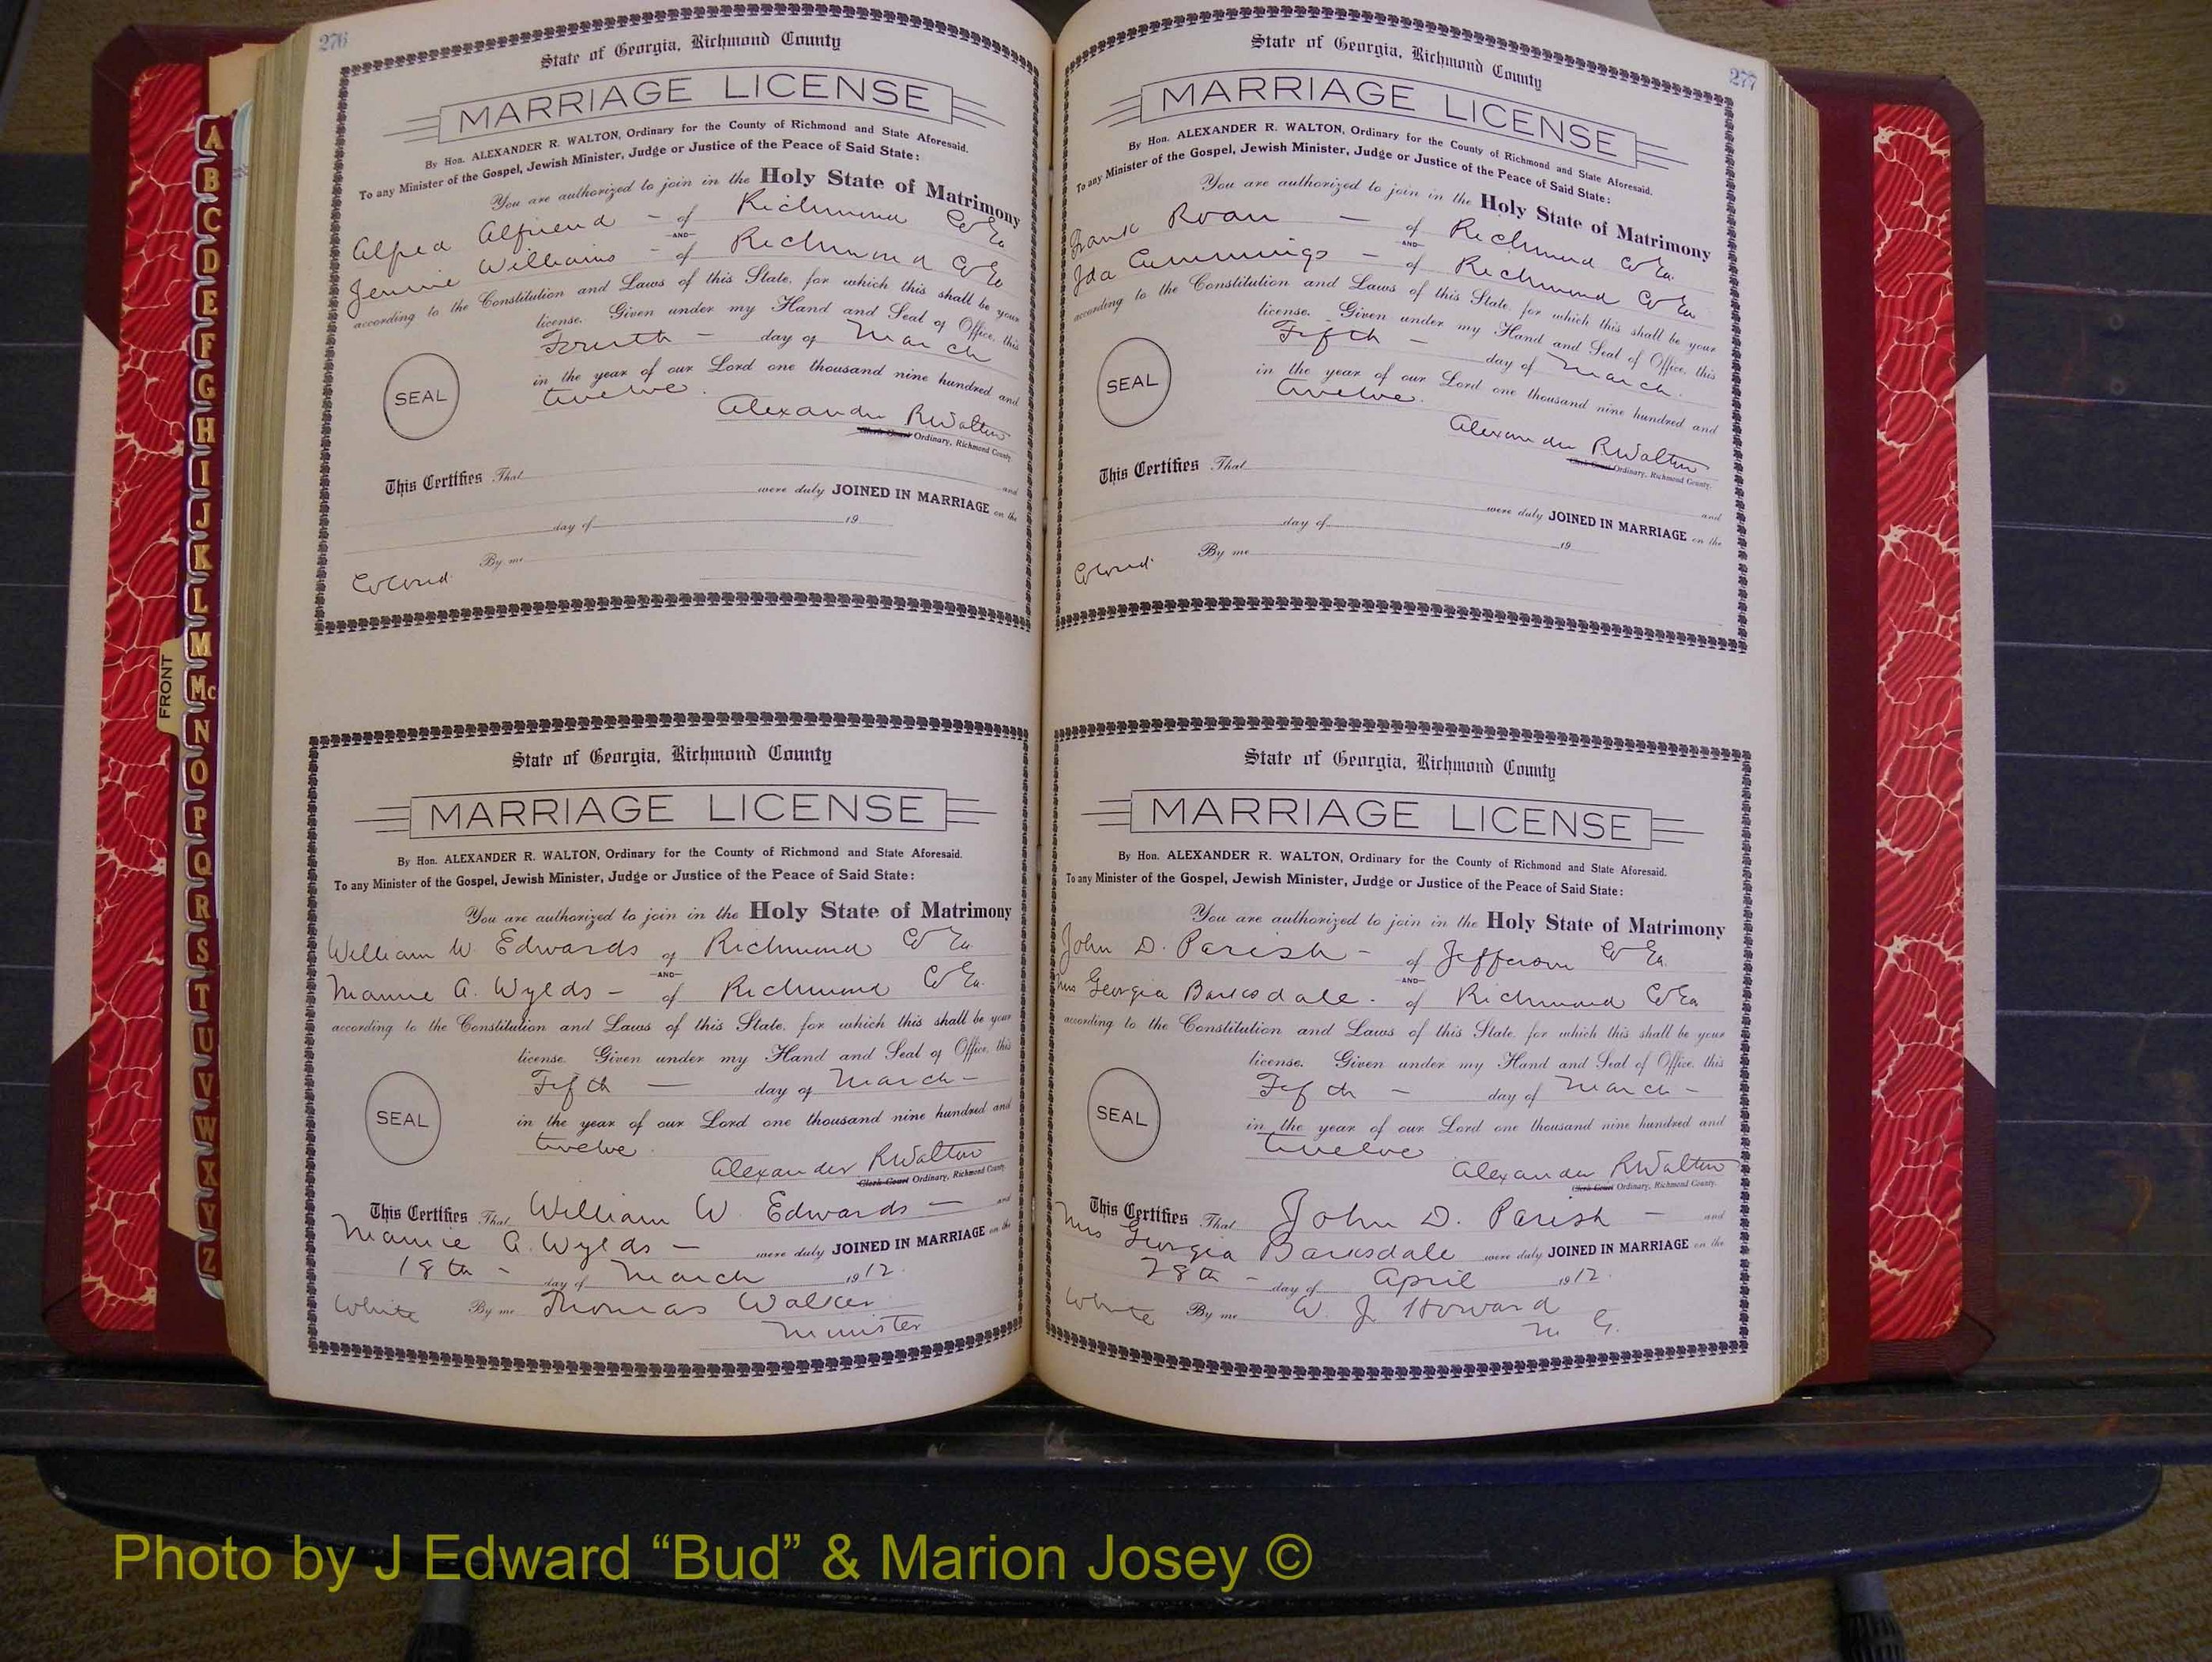 276
State of Georgia, Richmond County
MARRIAGE LICENSE
By Hon. ALEXANDER R. WALTON, Ordinary for the County of Richmond and State Aforesaid.
To any Minister of the Gospel, Jewish Minister, Judge or Justice of the Peace of Said State:
You are authorized to join in the Holy State of Matrimony
Alfred Alfriend - of Richmond Co Ga
AND
Jennie Williams - of Richmond Co Ga
according to the Constitution and Laws of this State, for which this shall be your
license. Given under my Hand and Seal of Office, this
Fourth - day of March
in the year of our Lord one thousand nine hundred and
twelve.
SEAL
Alexander R Walton
Clerk Court Ordinary, Richmond County.
This Certifies That and
were duly JOINED IN MARRIAGE on the
day of 19
By me
Colored.
State of Georgia, Richmond County
MARRIAGE LICENSE
By Hon. ALEXANDER R. WALTON, Ordinary for the County of Richmond and State Aforesaid.
To any Minister of the Gospel, Jewish Minister, Judge or Justice of the Peace of Said State:
You are authorized to join in the Holy State of Matrimony
William W. Edwards of Richmond Co Ga.
AND
Mamie A. Wylds - of Richmond Co Ga.
according to the Constitution and Laws of this State, for which this shall be your
license. Given under my Hand and Seal of Office, this
Fifth - day of March -
in the year of our Lord one thousand nine hundred and
twelve.
SEAL
Alexander R Walton
Clerk Court Ordinary, Richmond County.
This Certifies That William W. Edwards - and
Mamie A. Wylds - were duly JOINED IN MARRIAGE on the
18th - day of March 1912.
White By me Thomas Walker
Minister
277
State of Georgia, Richmond County
MARRIAGE LICENSE
By Hon. ALEXANDER R. WALTON, Ordinary for the County of Richmond and State Aforesaid.
To any Minister of the Gospel, Jewish Minister, Judge or Justice of the Peace of Said State:
You are authorized to join in the Holy State of Matrimony
Frank Roan - of Richmond Co Ga.
AND
Ida Cummings - of Richmond Co Ga
according to the Constitution and Laws of this State, for which this shall be your
license. Given under my Hand and Seal of Office, this
Fifth - day of March.
in the year of our Lord one thousand nine hundred and
twelve.
SEAL
Alexander R Walton
Clerk Court Ordinary, Richmond County.
This Certifies That and
were duly JOINED IN MARRIAGE on the
day of 19
By me
Colored.
State of Georgia, Richmond County
MARRIAGE LICENSE
By Hon. ALEXANDER R. WALTON, Ordinary for the County of Richmond and State Aforesaid.
To any Minister of the Gospel, Jewish Minister, Judge or Justice of the Peace of Said State:
You are authorized to join in the Holy State of Matrimony
John D. Parish - of Jefferson Co Ga.
AND
Mrs Georgia Barksdale - of Richmond Co Ga
according to the Constitution and Laws of this State, for which this shall be your
license. Given under my Hand and Seal of Office, this
Fifth - day of March -
in the year of our Lord one thousand nine hundred and
twelve
SEAL
Alexander R Walton
Clerk Court Ordinary, Richmond County.
This Certifies That John D. Parish - and
Mrs Georgia Barksdale were duly JOINED IN MARRIAGE on the
28th - day of April 1912.
White By me W. J. Howard
M G.
A
B
C
D
E
F
G
H
I
J
K
L
M
Mc
N
O
P
Q
R
S
T
U
V
W
X
Y
Z
FRONT
Photo by J Edward “Bud” & Marion Josey ©